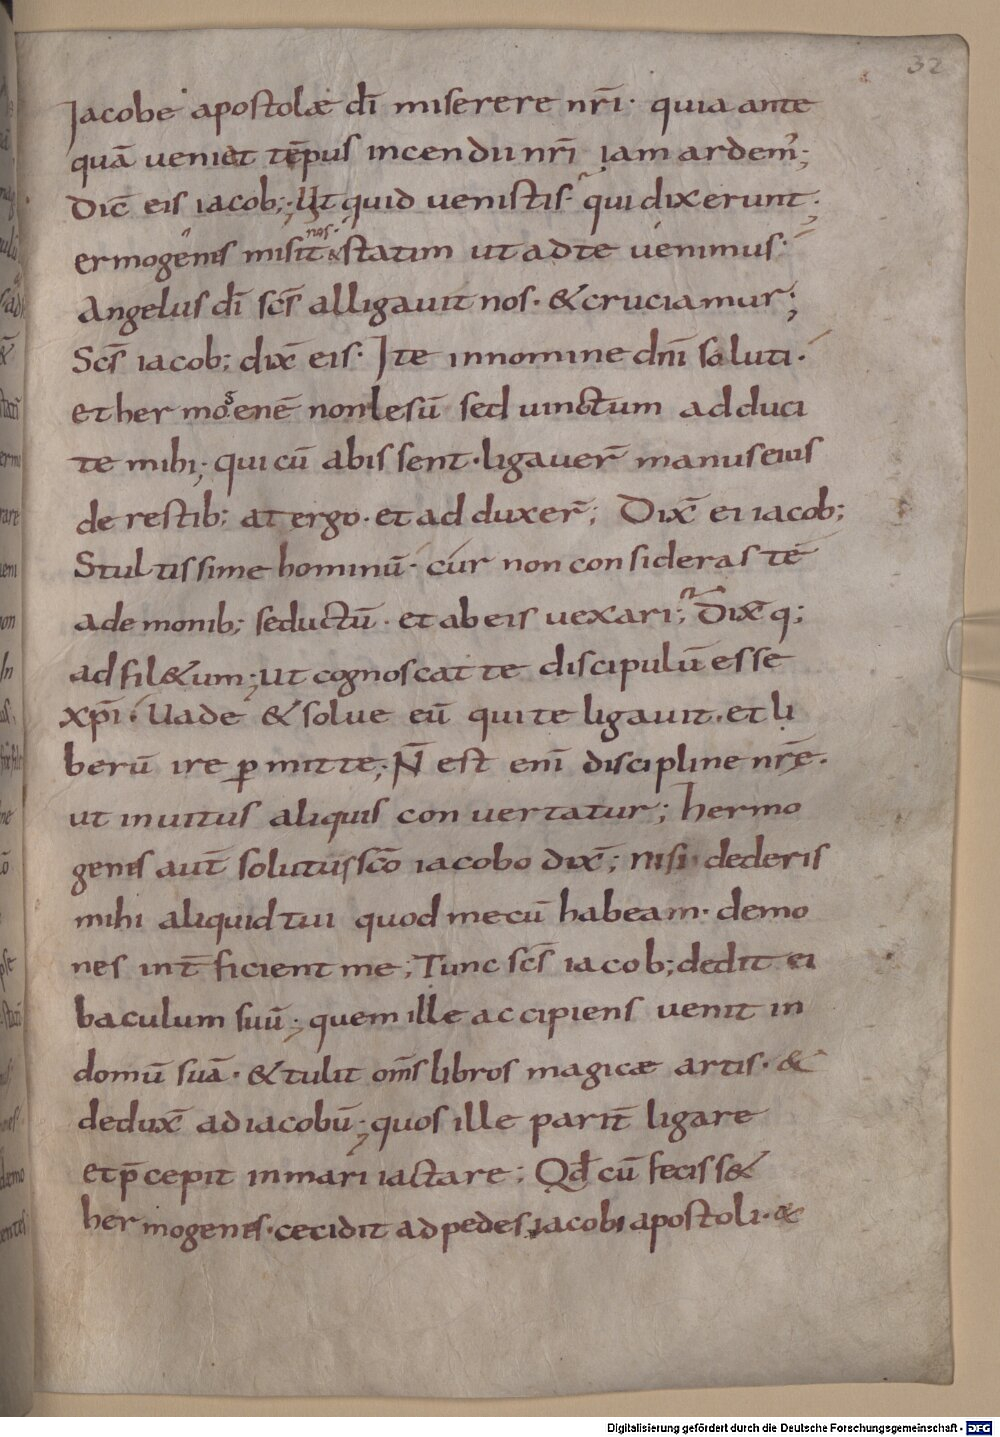 32
Jacobe apostolæ dī miserere nr̄i· quia ante
quā veniet tēpus incendii nr̄i iam ardem᷒;
Dix̄ eis iacob; Ut quid venistis· qui dixerunt·
ermogenis misit nos· & statim ut ad te venimus·
Angelus dī sc̄s alligavit nos· & cruciamur;
Sc̄s iacob; dix̄ eis· Ite in nomine dn̄i soluti·
et hermogenē non lesū sed vinctum adduci
te mihi; qui cū abissent· ligaver̄ manus eius
de restib; a tergo· et adduxer̄; Dix̄ ei iacob;
Stultissime hominū· cur non consideras te
a demonib; seductū· et ab eis vexari; Dix̄ q;
ad fil&um; Ut cognoscat te discipulū esse
xp̄i· Vade & solve eū qui te ligavit· et li
berū ire ꝑmitte; N̄ est enī discipline nr̄e·
ut invitus aliquis convertatur; hermo
genis aut̄ solutus sc̄o iacobo dix̄; nisi dederis
mihi aliquid tui quod mecū habeam· demo
nes int̄ficient me; Tunc sc̄s iacob; dedit ei
baculum suū; quem ille accipiens venit in
domū suā· & tulit om̄s libros magicæ artis· &
dedux̄ ad iacobū; quos ille parit̄ ligare
et p̄cepit in mari iactare; Qd̄ cū feciss&
hermogenis· cecidit ad pedes iacobi apostoli· &
Digitalisierung gefördert durch die Deutsche Forschungsgemeinschaft - DFG